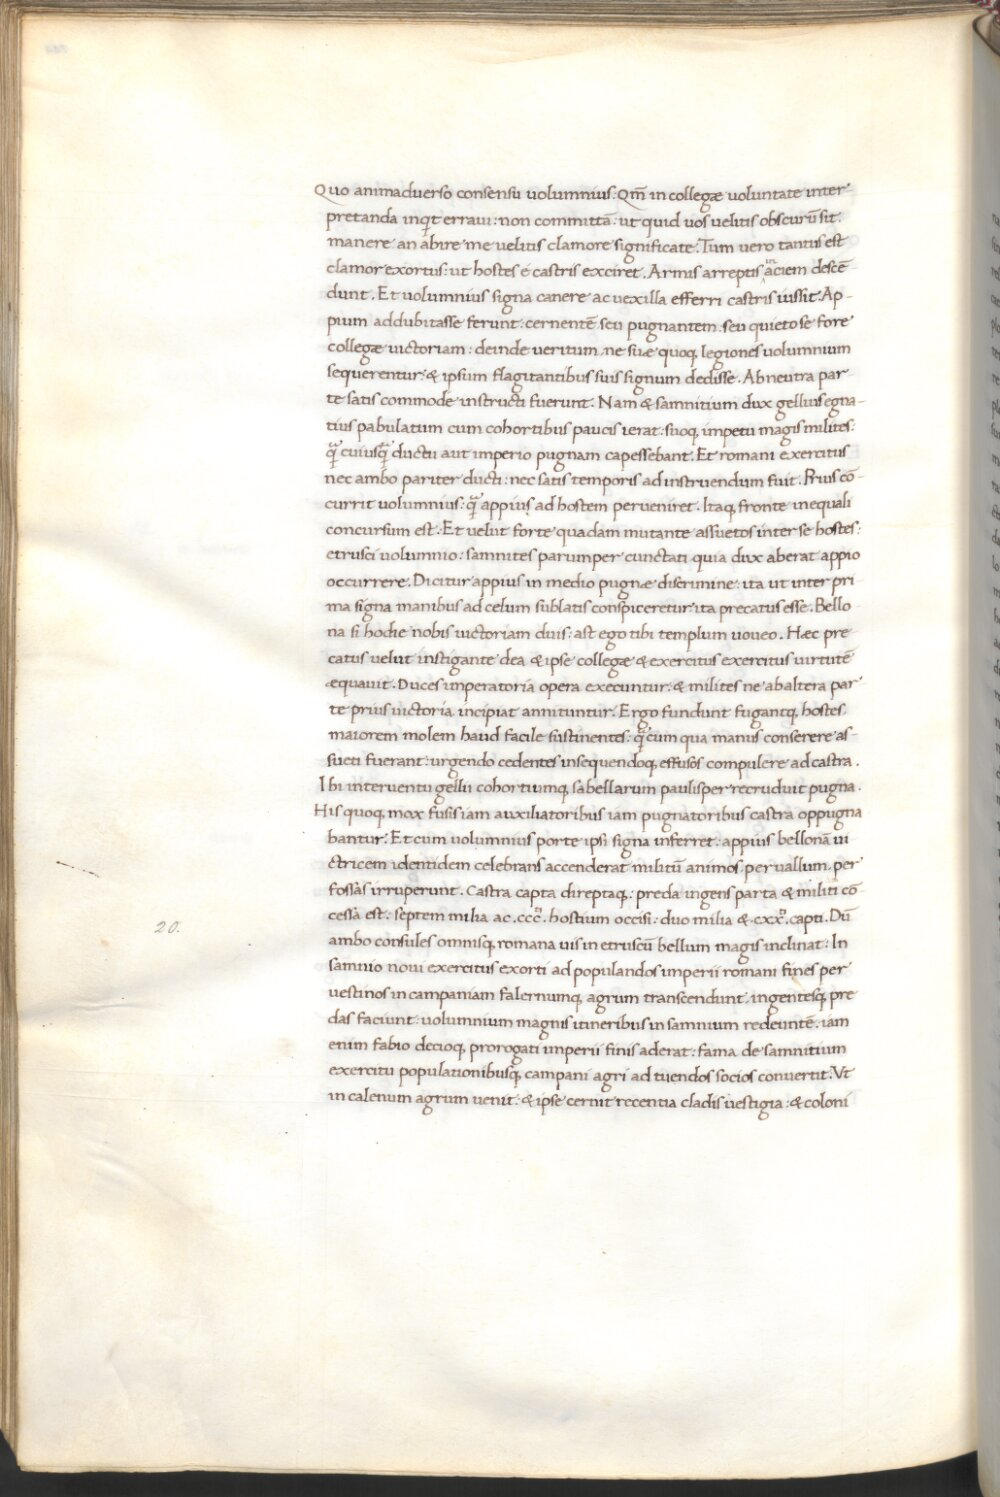 Quo animaduerso consensu uolumnius: Qm̄ in collegæ uoluntate inter-
pretanda inqt erraui: non committā: ut quid uos uelitis obscurū sit:
manere an abire me uelitis clamore significate. Tum uero tantus est
clamor exortus: ut hostes e castris exciret. Armis arreptis in aciem descē-
dunt. Et uolumnius signa canere ac uexilla efferri castris iussit. Ap-
pium addubitasse ferunt: cernentē seu pugnantem seu quieto se fore
collegæ uictoriam: deinde ueritum ne suæ quoq; legiones uolumnium
sequerentur: & ipsum flagitantibus suis signum dedisse. Ab neutra par-
te satis commode instructi fuerunt. Nam & samnitium dux gellius egna-
tius pabulatum cum cohortibus paucis ierat: suoq; impetu magis milites:
q̄ cuiusq̄ ductu aut imperio pugnam capessebant. Et romani exercitus
nec ambo pariter ducti: nec satis temporis ad instruendum fuit. Prius cō-
currit uolumnius: q̄ appius ad hostem perueniret. Itaq; fronte inequali
concursum est. Et uelut forte quadam mutante assuetos inter se hostes:
etrusci uolumnio: samnites parumper cunctati quia dux aberat appio
occurrere. Dicitur appius in medio pugnæ discrimine: ita ut inter pri
ma signa manibus ad celum sublatis conspiceretur ita precatus esse. Bello
na si hodie nobis uictoriam duis: ast ego tibi templum uoueo. Hæc pre
catus uelut instigante dea & ipse collegæ & exercitus exercitus uirtutē
æquauit. Duces imperatoria opera execuntur: & milites ne ab altera par-
te prius uictoria incipiat annituntur. Ergo fundunt fugantq; hostes
maiorem molem haud facile sustinentes: q̄ cum qua manus conserere as-
sueti fuerant: urgendo cedentes insequendoq; effusos compulere ad castra.
Ibi interuentu gellii cohortiumq; sabellarum paulisper recruduit pugna.
His quoq; mox fusis iam auxiliatoribus iam pugnatoribus castra oppugna
bantur. Et cum uolumnius porte ipsi signa inferret: appius bellonā ui
ctricem identidem celebrans accenderat militū animos per uallum per
fossas irruperunt. Castra capta direptaq;: preda ingens parta & militi cō-
cessa est: septem milia ac .ccc. hostium occisi: duo milia & .cxx. capti. Dū
ambo consules omnisq; romana uis in etruscū bellum magis inclinat: In
samnio noui exercitus exorti ad populandos imperii romani fines per
uestinos in campaniam falernumq; agrum transcendunt ingentesq; pre
das faciunt: uolumnium magnis itineribus in samnium redeuntē: iam
enim fabio decioq; prorogati imperii finis aderat: fama de samnitium
exercitu populationibusq; campani agri ad tuendos socios conuertit. Vt
in calenum agrum uenit: & ipse cernit recentia cladis uestigia: & coloni
20.